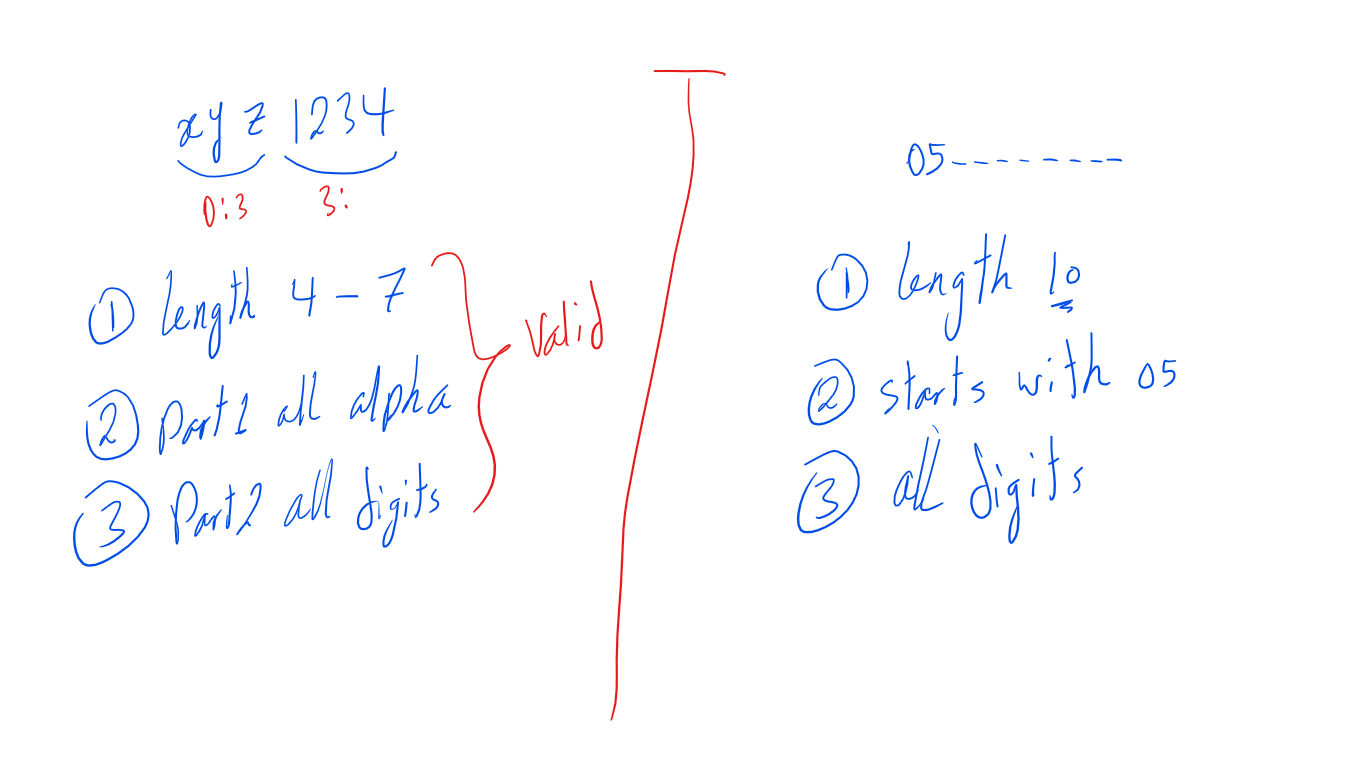 xyz 1234
0:3 3:
① length 4 - 7
② Part1 all alpha
③ Part2 all digits
valid
05--------
① length 10
② starts with 05
③ all digits